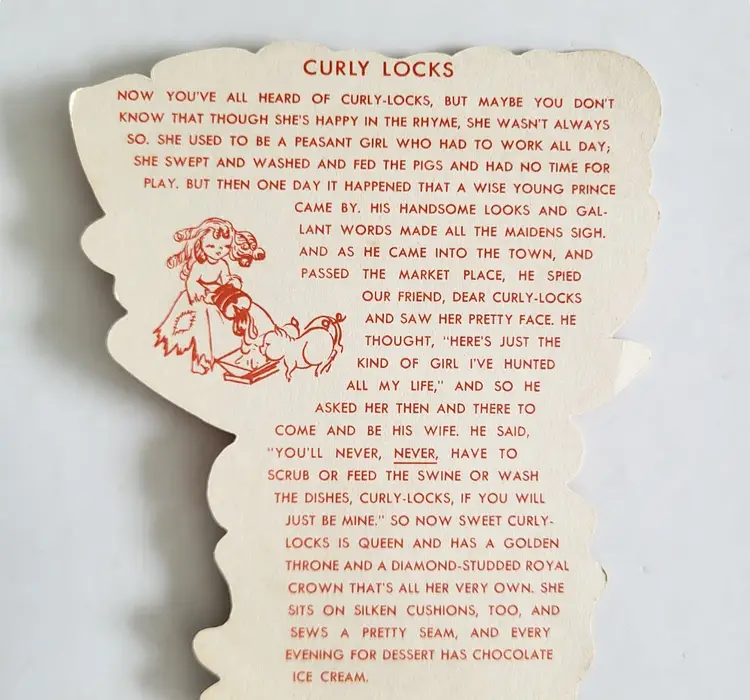 CURLY LOCKS
NOW YOU'VE ALL HEARD OF CURLY-LOCKS, BUT MAYBE YOU DON'T
KNOW THAT THOUGH SHE'S HAPPY IN THE RHYME, SHE WASN'T ALWAYS
SO. SHE USED TO BE A PEASANT GIRL WHO HAD TO WORK ALL DAY;
SHE SWEPT AND WASHED AND FED THE PIGS AND HAD NO TIME FOR
PLAY. BUT THEN ONE DAY IT HAPPENED THAT A WISE YOUNG PRINCE
CAME BY. HIS HANDSOME LOOKS AND GAL-
LANT WORDS MADE ALL THE MAIDENS SIGH.
AND AS HE CAME INTO THE TOWN, AND
PASSED THE MARKET PLACE, HE SPIED
OUR FRIEND, DEAR CURLY-LOCKS
AND SAW HER PRETTY FACE. HE
THOUGHT, "HERE'S JUST THE
KIND OF GIRL I'VE HUNTED
ALL MY LIFE," AND SO HE
ASKED HER THEN AND THERE TO
COME AND BE HIS WIFE. HE SAID,
"YOU'LL NEVER, NEVER, HAVE TO
SCRUB OR FEED THE SWINE OR WASH
THE DISHES, CURLY-LOCKS, IF YOU WILL
JUST BE MINE." SO NOW SWEET CURLY-
LOCKS IS QUEEN AND HAS A GOLDEN
THRONE AND A DIAMOND-STUDDED ROYAL
CROWN THAT'S ALL HER VERY OWN. SHE
SITS ON SILKEN CUSHIONS, TOO, AND
SEWS A PRETTY SEAM, AND EVERY
EVENING FOR DESSERT HAS CHOCOLATE
ICE CREAM.